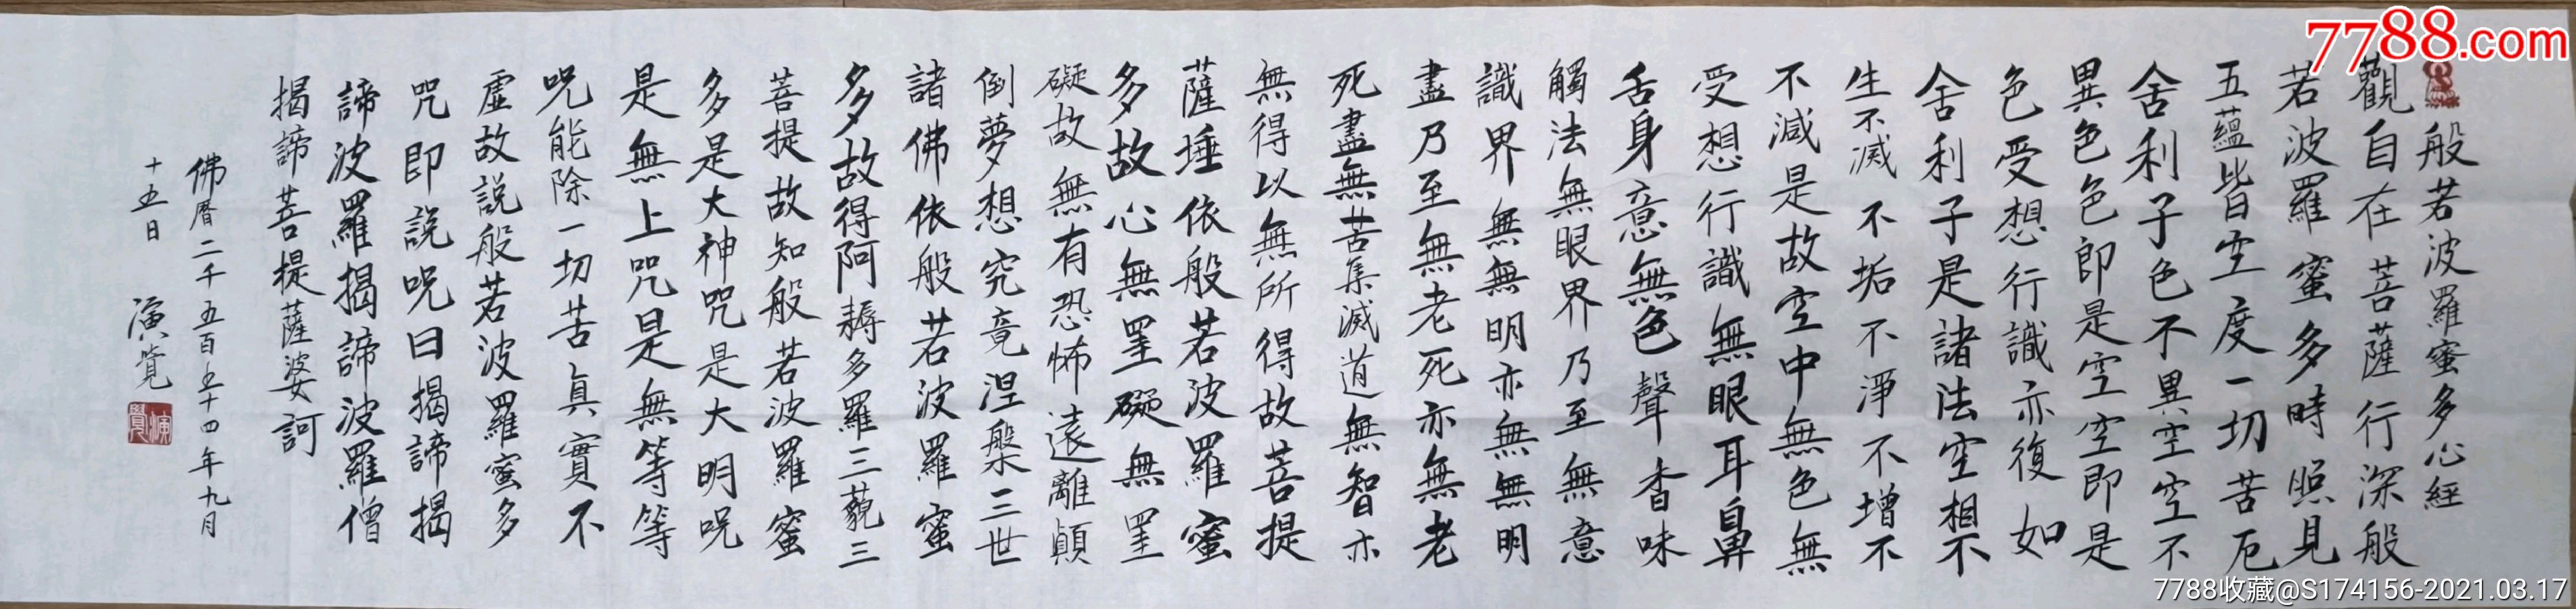 般若波羅蜜多心經
觀自在菩薩行深般
若波羅蜜多時照見
五蘊皆空度一切苦厄
舍利子色不異空空不
異色色即是空空即是
色受想行識亦復如
舍利子是諸法空想不
生不滅不垢不淨不增不
不減是故空中無色無
受想行識無眼耳鼻
舌身意無色聲香味
觸法無眼界乃至無意
識界無無明亦無無明
盡乃至無老死亦無老
死盡無苦集滅道無智亦
無得以無所得故菩提
薩埵依般若波羅蜜
多故心無罣礙無罣
礙故無有恐怖遠離顛
倒夢想究竟涅槃三世
諸佛依般若波羅蜜
多故得阿耨多羅三藐三
菩提故知般若波羅蜜
多是大神咒是大明咒
是無上咒是無等等
咒能除一切苦真實不
虛故説般若波羅蜜多
咒即説咒曰揭諦揭
諦波羅揭諦波羅僧
揭諦菩提薩婆訶
佛曆二千五百五十四年九月
十五日 演覺
演覺
7788.com
7788收藏@S174156-2021.03.17